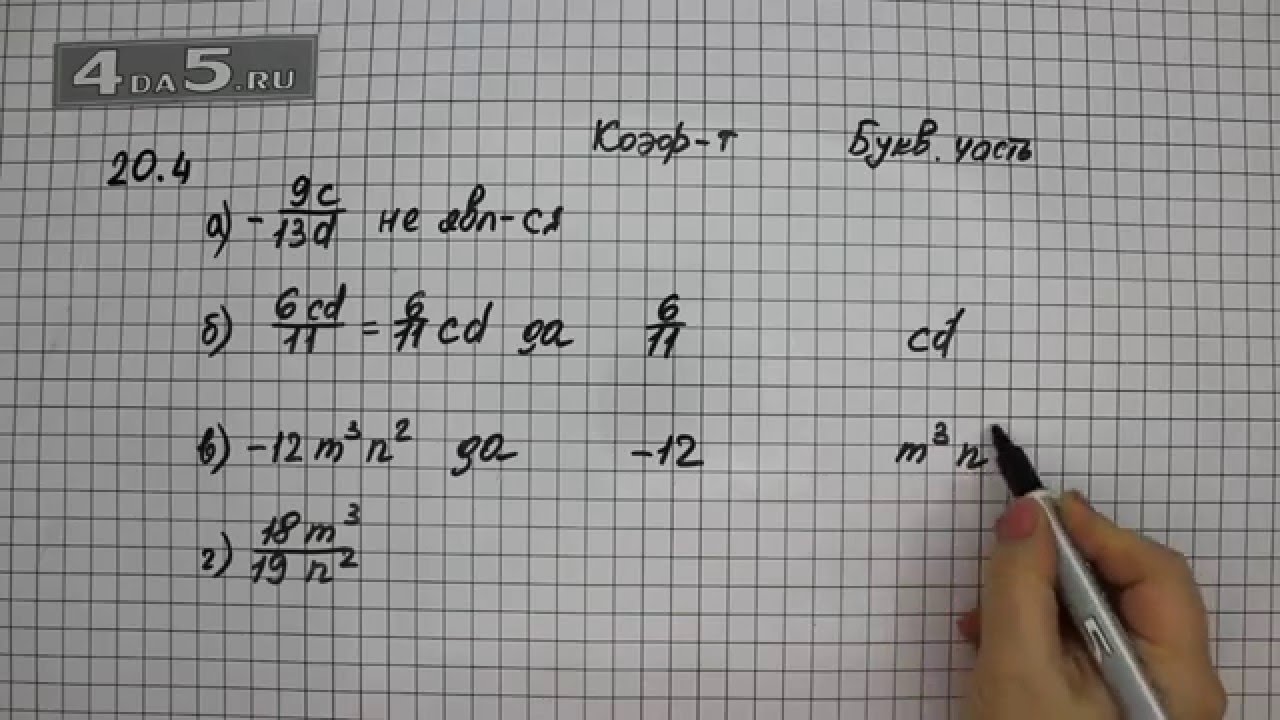 4DA5.RU
Коэф-т Букв. часть
20.4
а) -9c/13d не явл-ся
б) 6cd/11 = 6/11 cd да 6/11 cd
в) -12m³n² да -12 m³n
г) 18m³/19n²